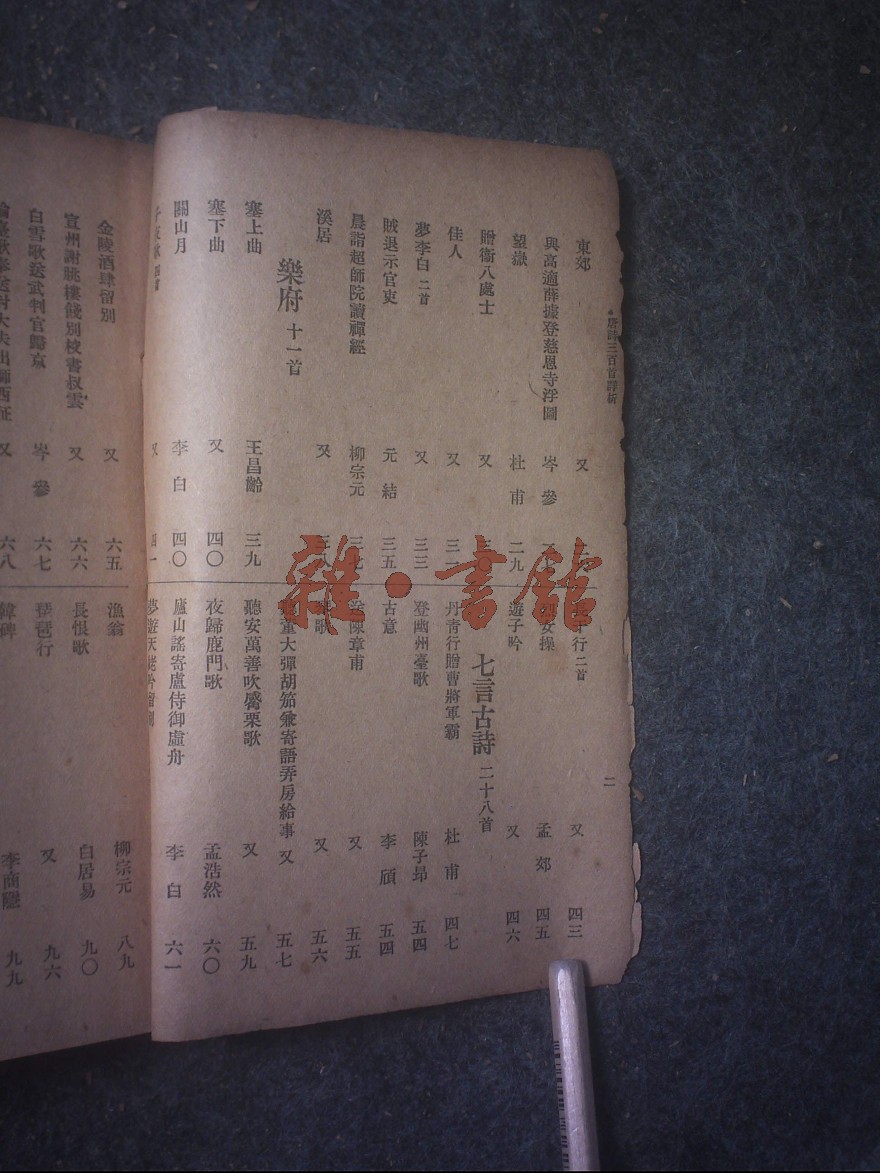 唐詩三百首詳析
二
東郊 又
與高適薛據登慈恩寺浮圖 岑參
望嶽 杜甫 二九
贈衞八處士 又
佳人 又
夢李白 二首 又 三三
賊退示官吏 元結 三五
晨詣超師院讀禪經 柳宗元
溪居 又
樂府 十一首
塞上曲 王昌齡 三九
塞下曲 又 四〇
關山月 李白 四〇
又
行 二首 又 四三
操 孟郊 四五
遊子吟 又 四六
七言古詩 二十八首
丹青行贈曹將軍霸 杜甫 四七
登幽州臺歌 陳子昂 五四
古意 李頎 五四
陳章甫 又 五五
歌 又 五六
董大彈胡笳兼寄語弄房給事 又 五七
聽安萬善吹觱栗歌 又 五九
夜歸鹿門歌 孟浩然 六〇
廬山謠寄盧侍御虛舟 李白 六一
夢遊天姥吟留別
金陵酒肆留別 又 六五
宣州謝朓樓餞別校書叔雲 又 六六
白雪歌送武判官歸京 岑參 六七
輪臺歌奉送封大夫出師西征 又 六八
漁翁 柳宗元 八九
長恨歌 白居易 九〇
琵琶行 又 九六
韓碑 李商隱 九九
雜·書館